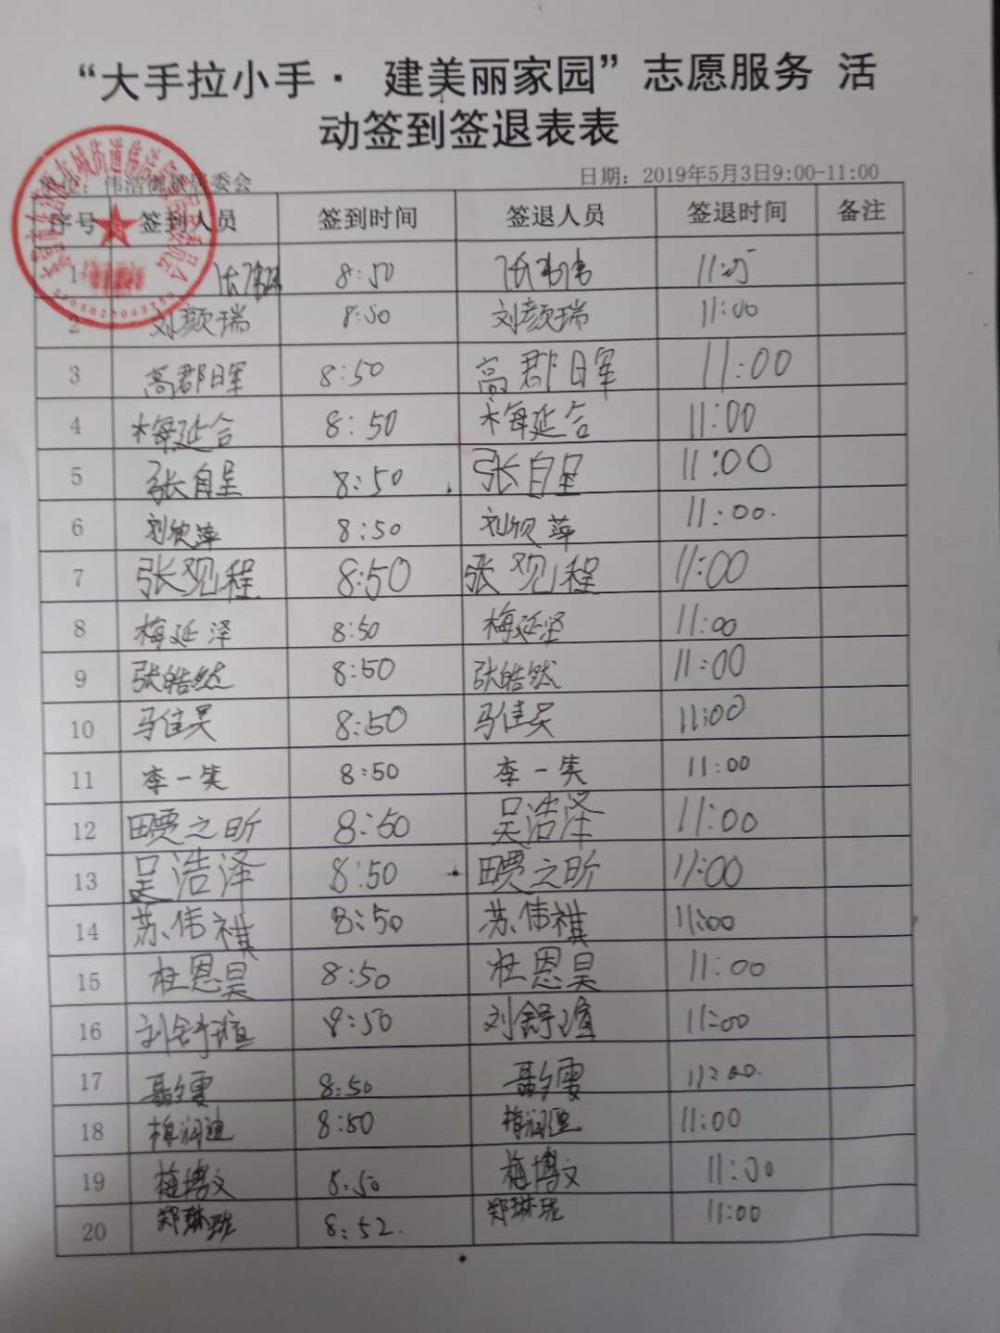 “大手拉小手· 建美丽家园”志愿服务 活
动签到签退表表
伟浩 委会 日期：2019年5月3日9:00-11:00
序号 签到人员 签到时间 签退人员 签退时间 备注
1 8:50 张
2 刘颜瑞 8:50 刘颜瑞 11:00
3 高郡日军 8:50 高郡日军 11:00
4 梅延合 8:50 梅延合 11:00
5 张自呈 8:50 张自呈 11:00
6 刘欣萍 8:50 刘欣萍 11:00.
7 张观程 8:50 张观程 11:00
8 梅延泽 8:50 梅延泽 11:00
9 张皓然 8:50 张皓然 11:00
10 马佳昊 8:50 马佳昊 11:00
11 李一笑 8:50 李一笑 11:00
12 田贾之昕 8:50 吴浩泽 11:00
13 吴浩泽 8:50 田贾之昕 11:00
14 苏伟祺 8:50 苏伟祺 11:00
15 杜恩昊 8:50 杜恩昊 11:00
16 刘舒瑄 8:50 刘舒瑄 11:00
17 8:50 11:00.
18 8:50 11:00
19 梅博文 8:50 梅博文 11:00
20 郑琳珑 8:52. 郑琳珑 11:00